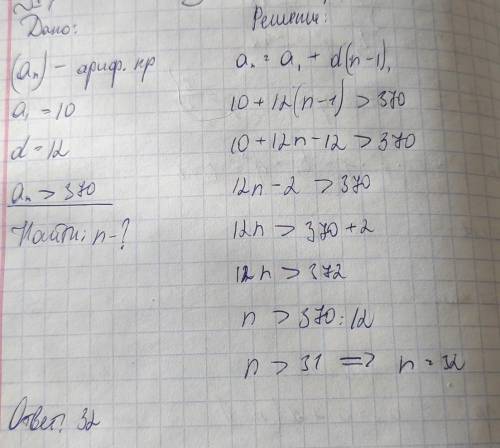 Дано:
(aₙ) - ариф. пр
a₁ = 10
d = 12
aₙ > 370
Найти: n - ?
Решение:
aₙ = a₁ + d(n-1),
10 + 12(n-1) > 370
10 + 12n - 12 > 370
12n - 2 > 370
12n > 370 + 2
12n > 372
n > 370 : 12
n > 31 => n = 32
Ответ: 32